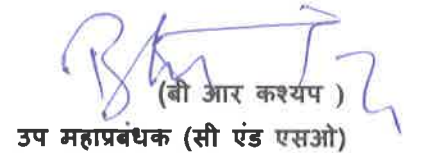 (बी आर कश्यप )
उप महाप्रबंधक (सी एंड एसओ)